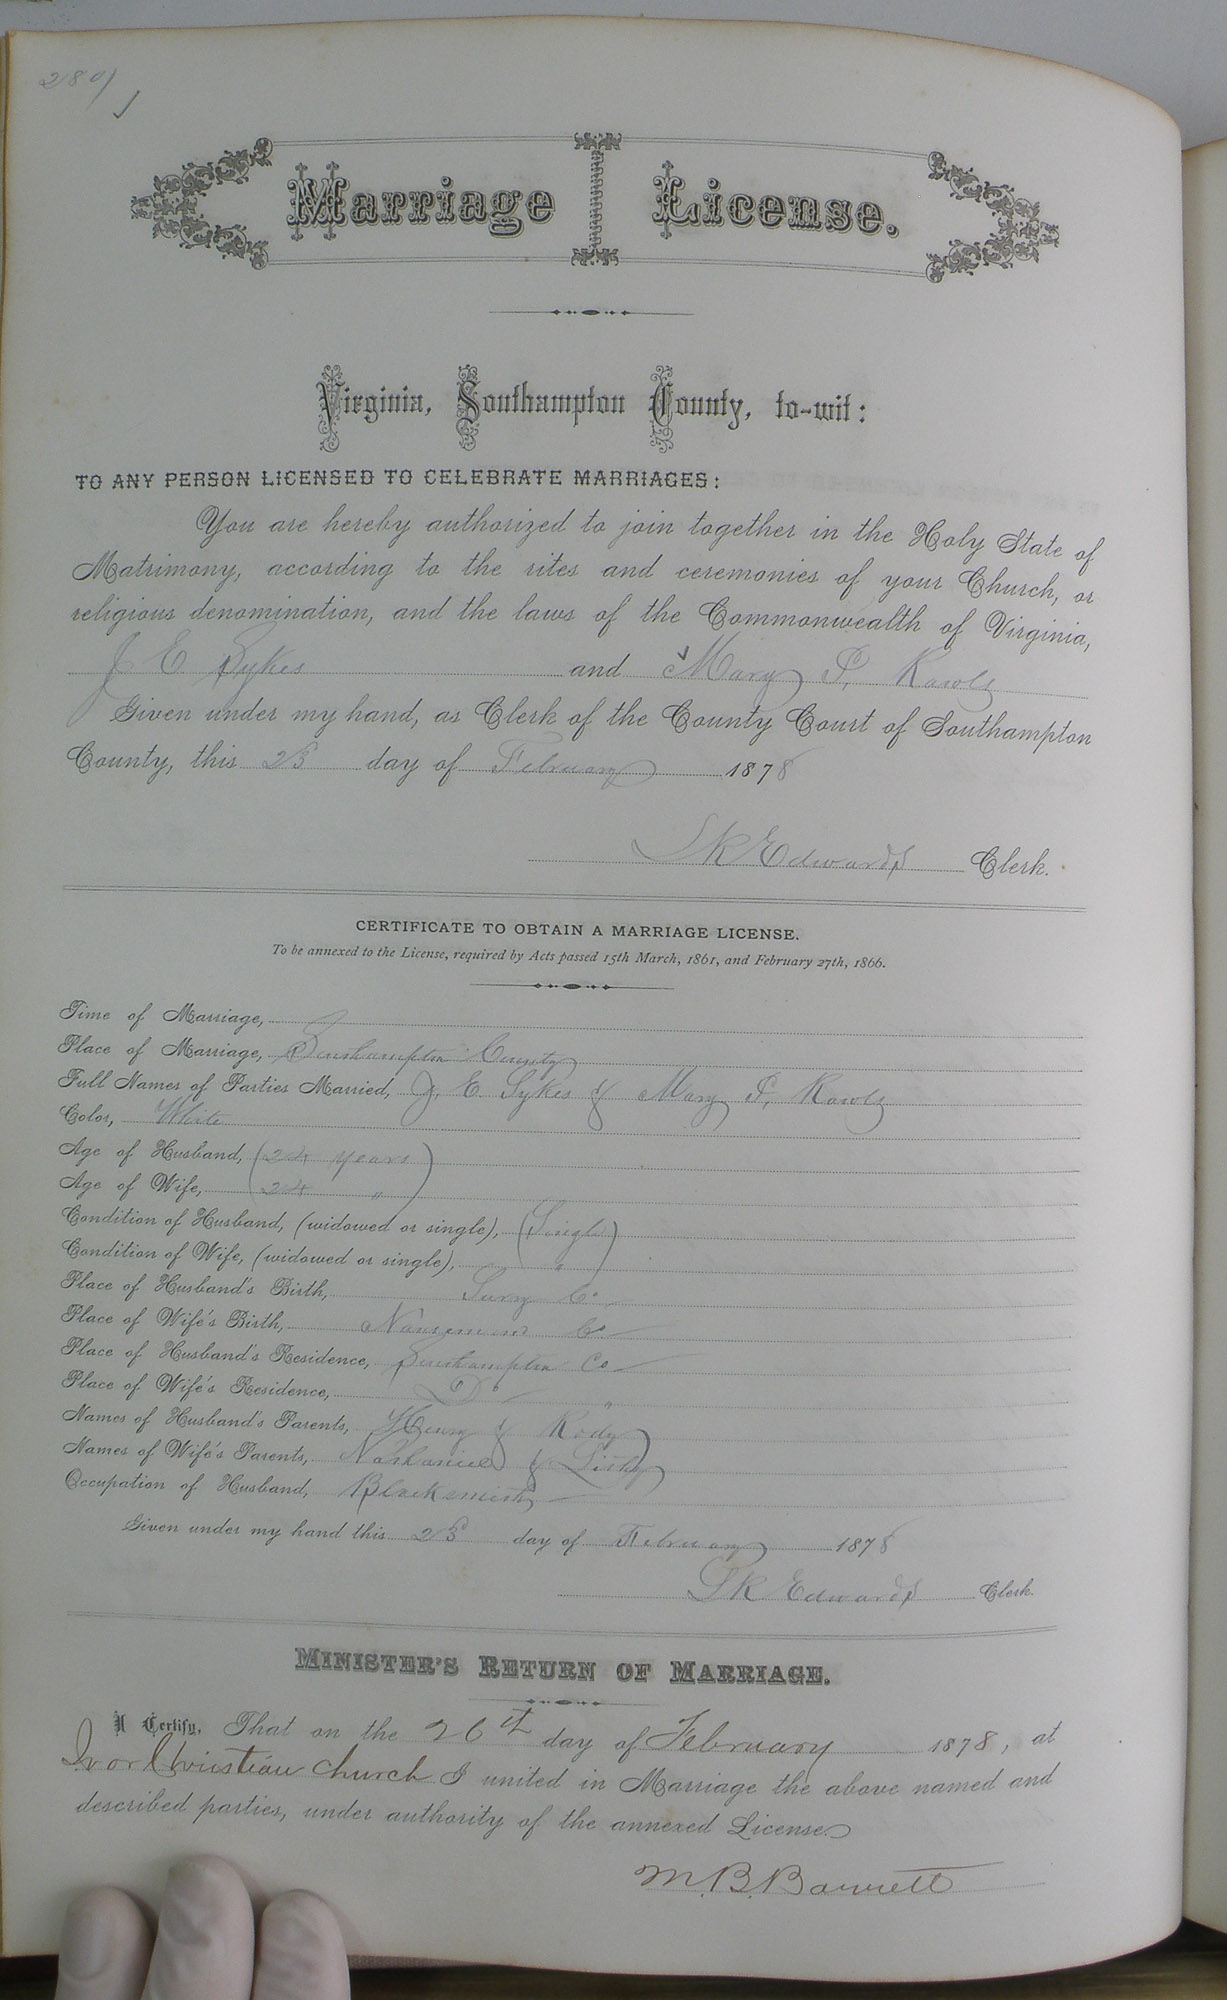 280
Marriage License.
Virginia, Southampton County, to-wit:
TO ANY PERSON LICENSED TO CELEBRATE MARRIAGES:
You are hereby authorized to join together in the Holy State of
Matrimony, according to the rites and ceremonies of your Church, or
religious denomination, and the laws of the Commonwealth of Virginia,
J E Sykes and Mary S. Rawls
Given under my hand, as Clerk of the County Court of Southampton
County, this 25 day of February 1878
L R Edwards Clerk.
CERTIFICATE TO OBTAIN A MARRIAGE LICENSE.
To be annexed to the License, required by Acts passed 15th March, 1861, and February 27th, 1866.
Time of Marriage,
Place of Marriage, Southampton County
Full Names of Parties Married, J. E. Sykes & Mary S. Rawls
Color, White
Age of Husband, 24 years
Age of Wife, 24 "
Condition of Husband, (widowed or single), Single
Condition of Wife, (widowed or single), "
Place of Husband's Birth, Surry Co
Place of Wife's Birth, Nansemond Co
Place of Husband's Residence, Southampton Co
Place of Wife's Residence, Do "
Names of Husband's Parents, Henry & Rody
Names of Wife's Parents, Nathaniel &
Occupation of Husband, Blacksmith
Given under my hand this 25 day of February 1878
L R Edwards Clerk.
MINISTER'S RETURN OF MARRIAGE.
I Certify, That on the 26th day of February 1878, at
Ivor Christian Church I united in Marriage the above named and
described parties, under authority of the annexed License.
M. B. Barrett